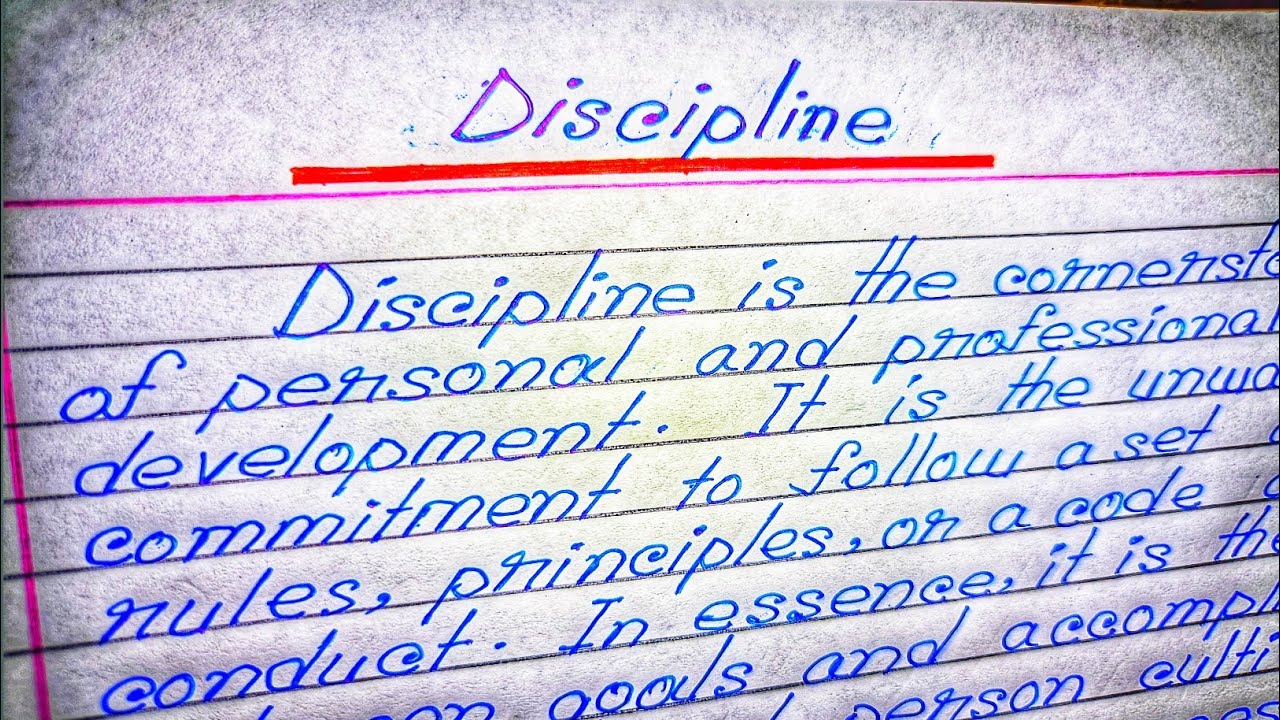 Discipline
Discipline is the cornerst
of personal and professional
development. It is the unwa
commitment to follow a set
rules, principles, or a code
conduct. In essence, it is the
goals and accompl
person culti